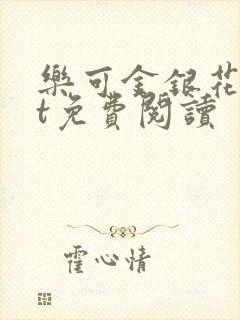 樂可金銀花
t免費閱讀
霍心情